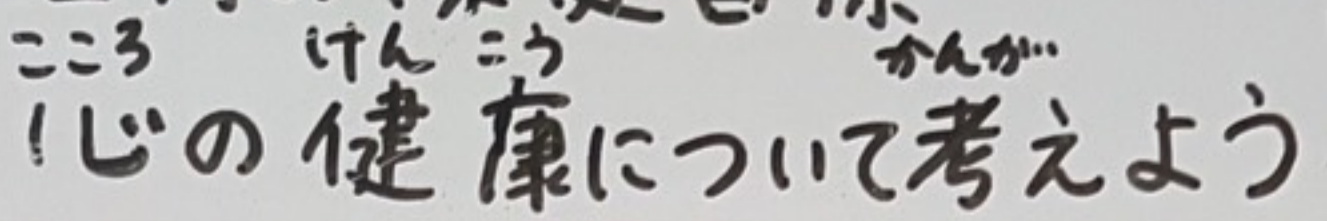 こころ けんこう かんが…
心の健康について考えよう